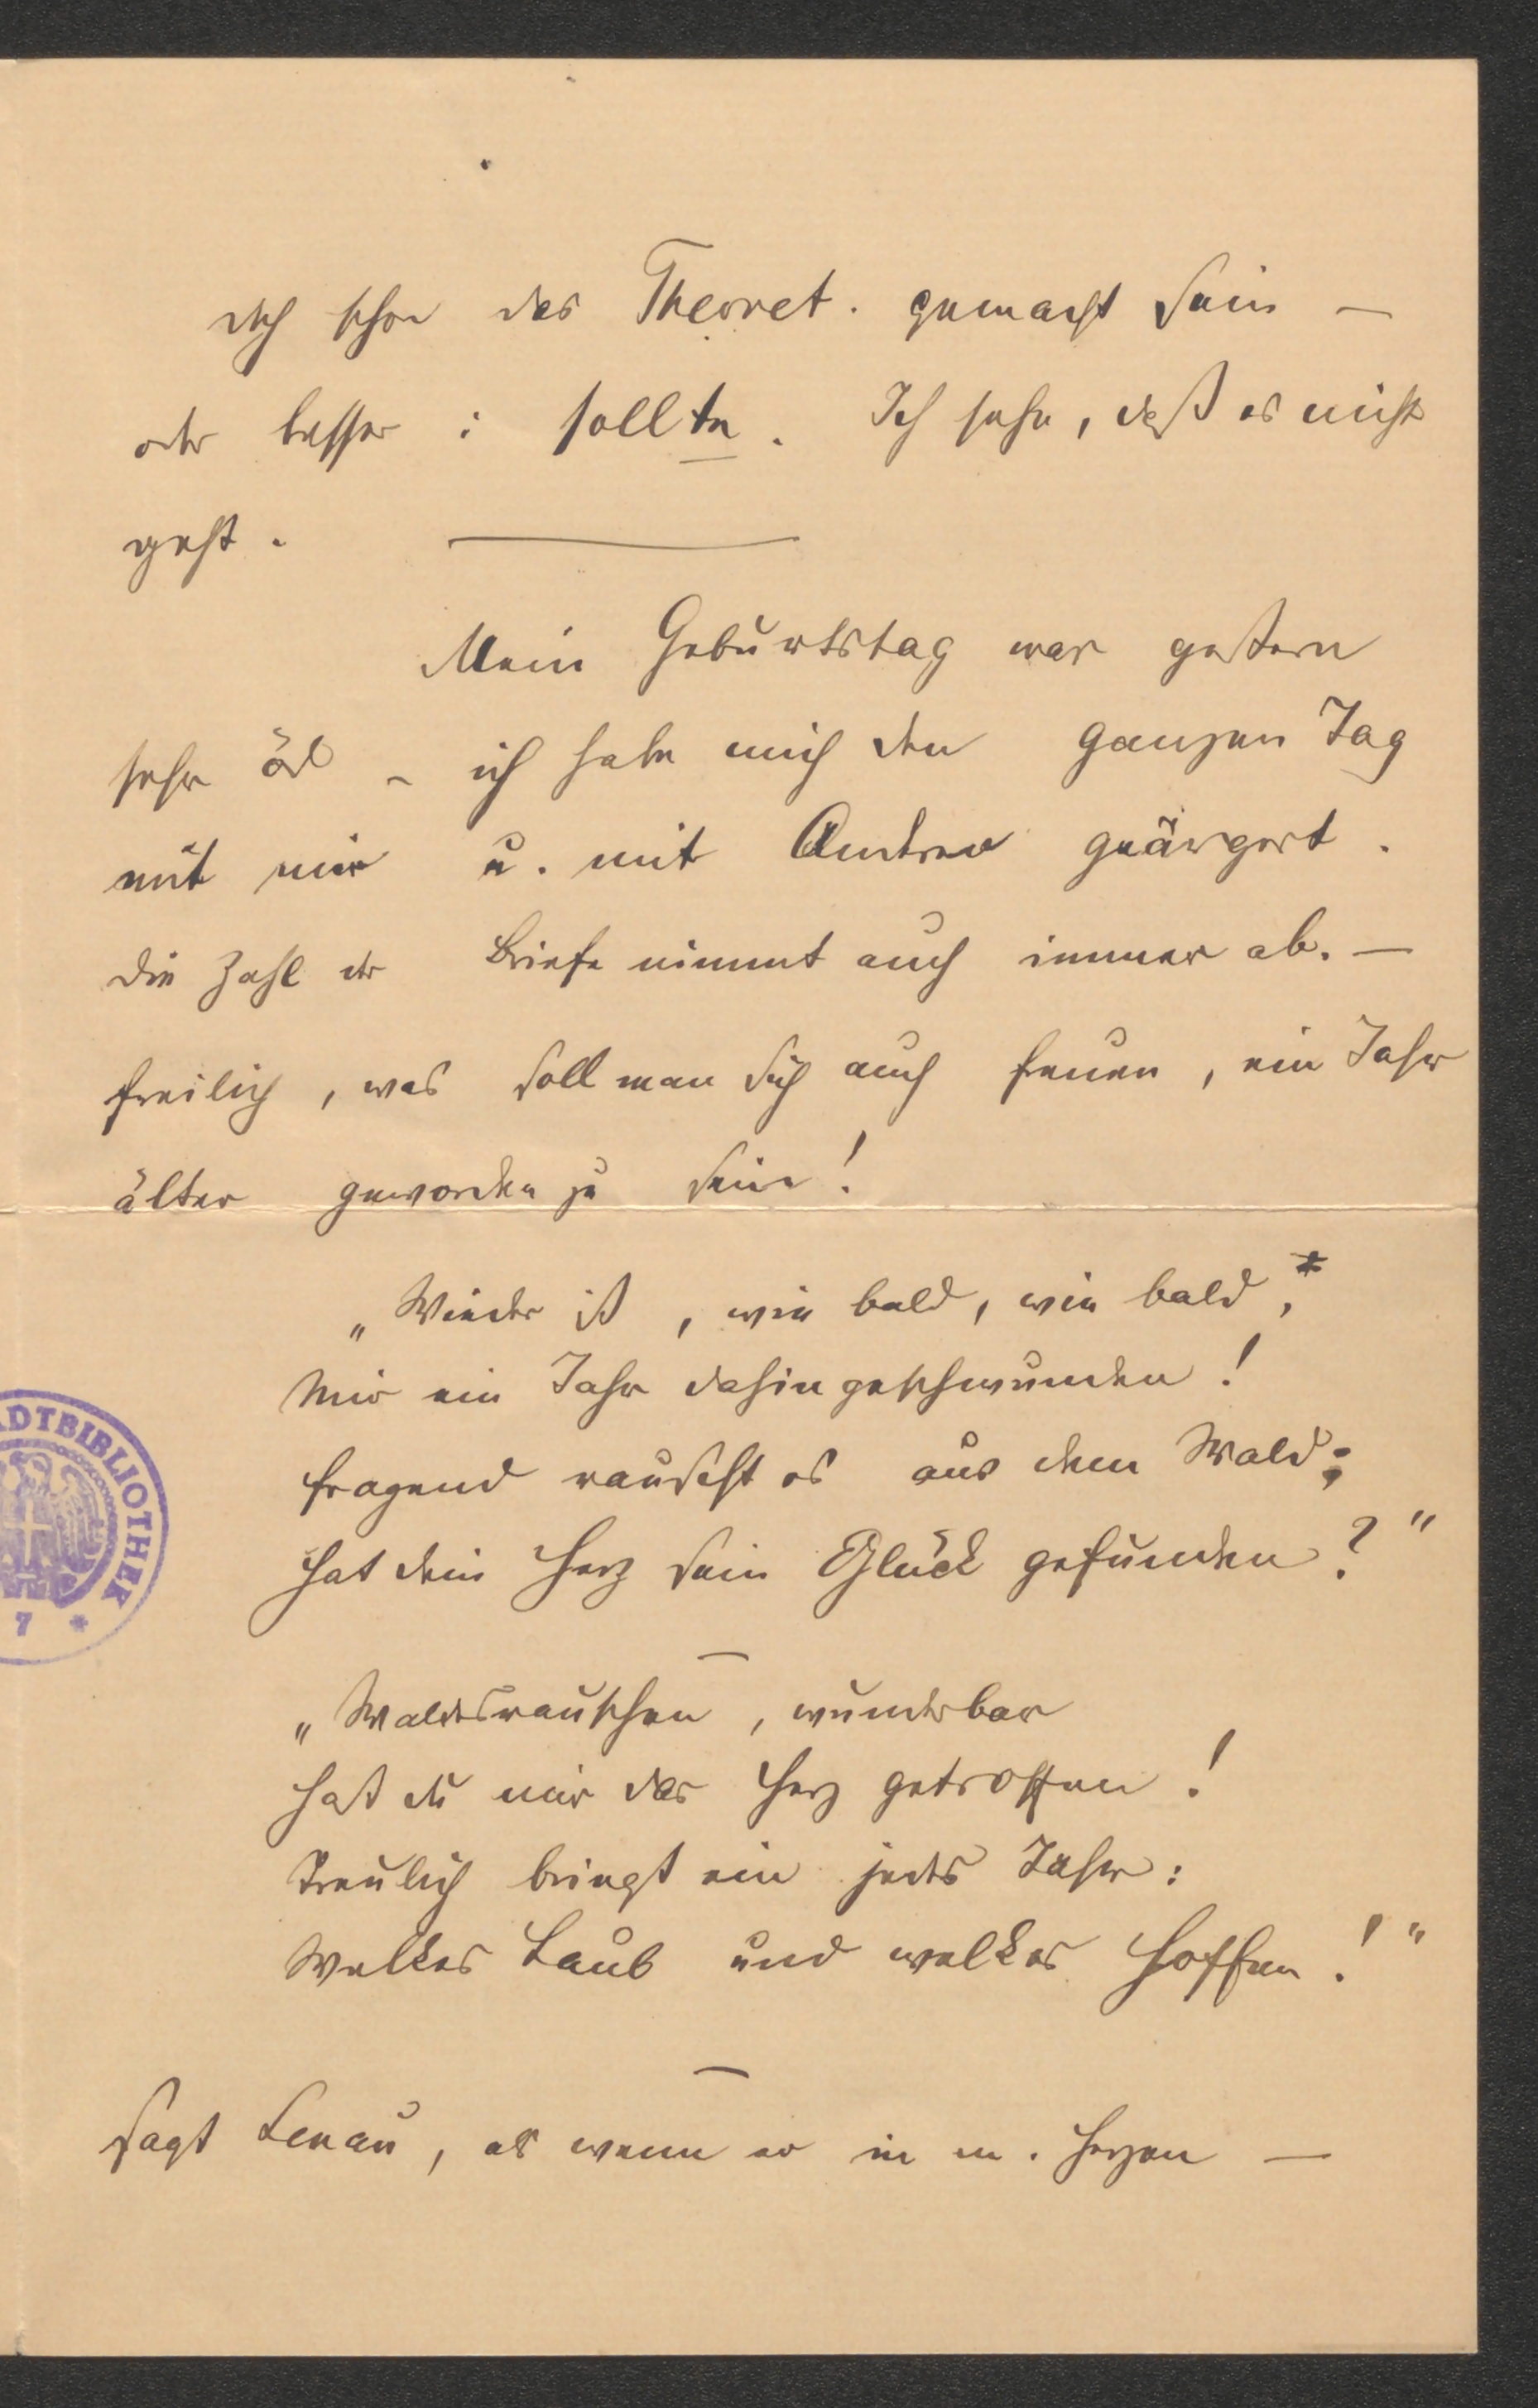 doch schon das Theoret. gemacht sein —
oder besser: sollte. Ich sehe, daß es nicht
geht. —
Mein Geburtstag war gestern
sehr öd – ich habe mich den ganzen Tag
mit mir u. mit Andren geärgert.
Die Zahl der Briefe nimmt auch immer ab. —
freilich, was soll man sich auch freuen, ein Jahr
älter geworden zu sein!
„Wieder ist, wie bald, wie bald,*
Mir ein Jahr dahingeschwunden!
Fragend rauscht es aus dem Wald;
Hat dein Herz sein Glück gefunden?"
—
„Waldesrauschen, wunderbar
Hast du mir das Herz getroffen!
Treulich bringt ein jedes Jahr:
Welkes Laub und welkes Hoffen!"
—
sagt Lenau, als wenn er in m. Herzen —
ADTBIBLIOTHEK
7 *